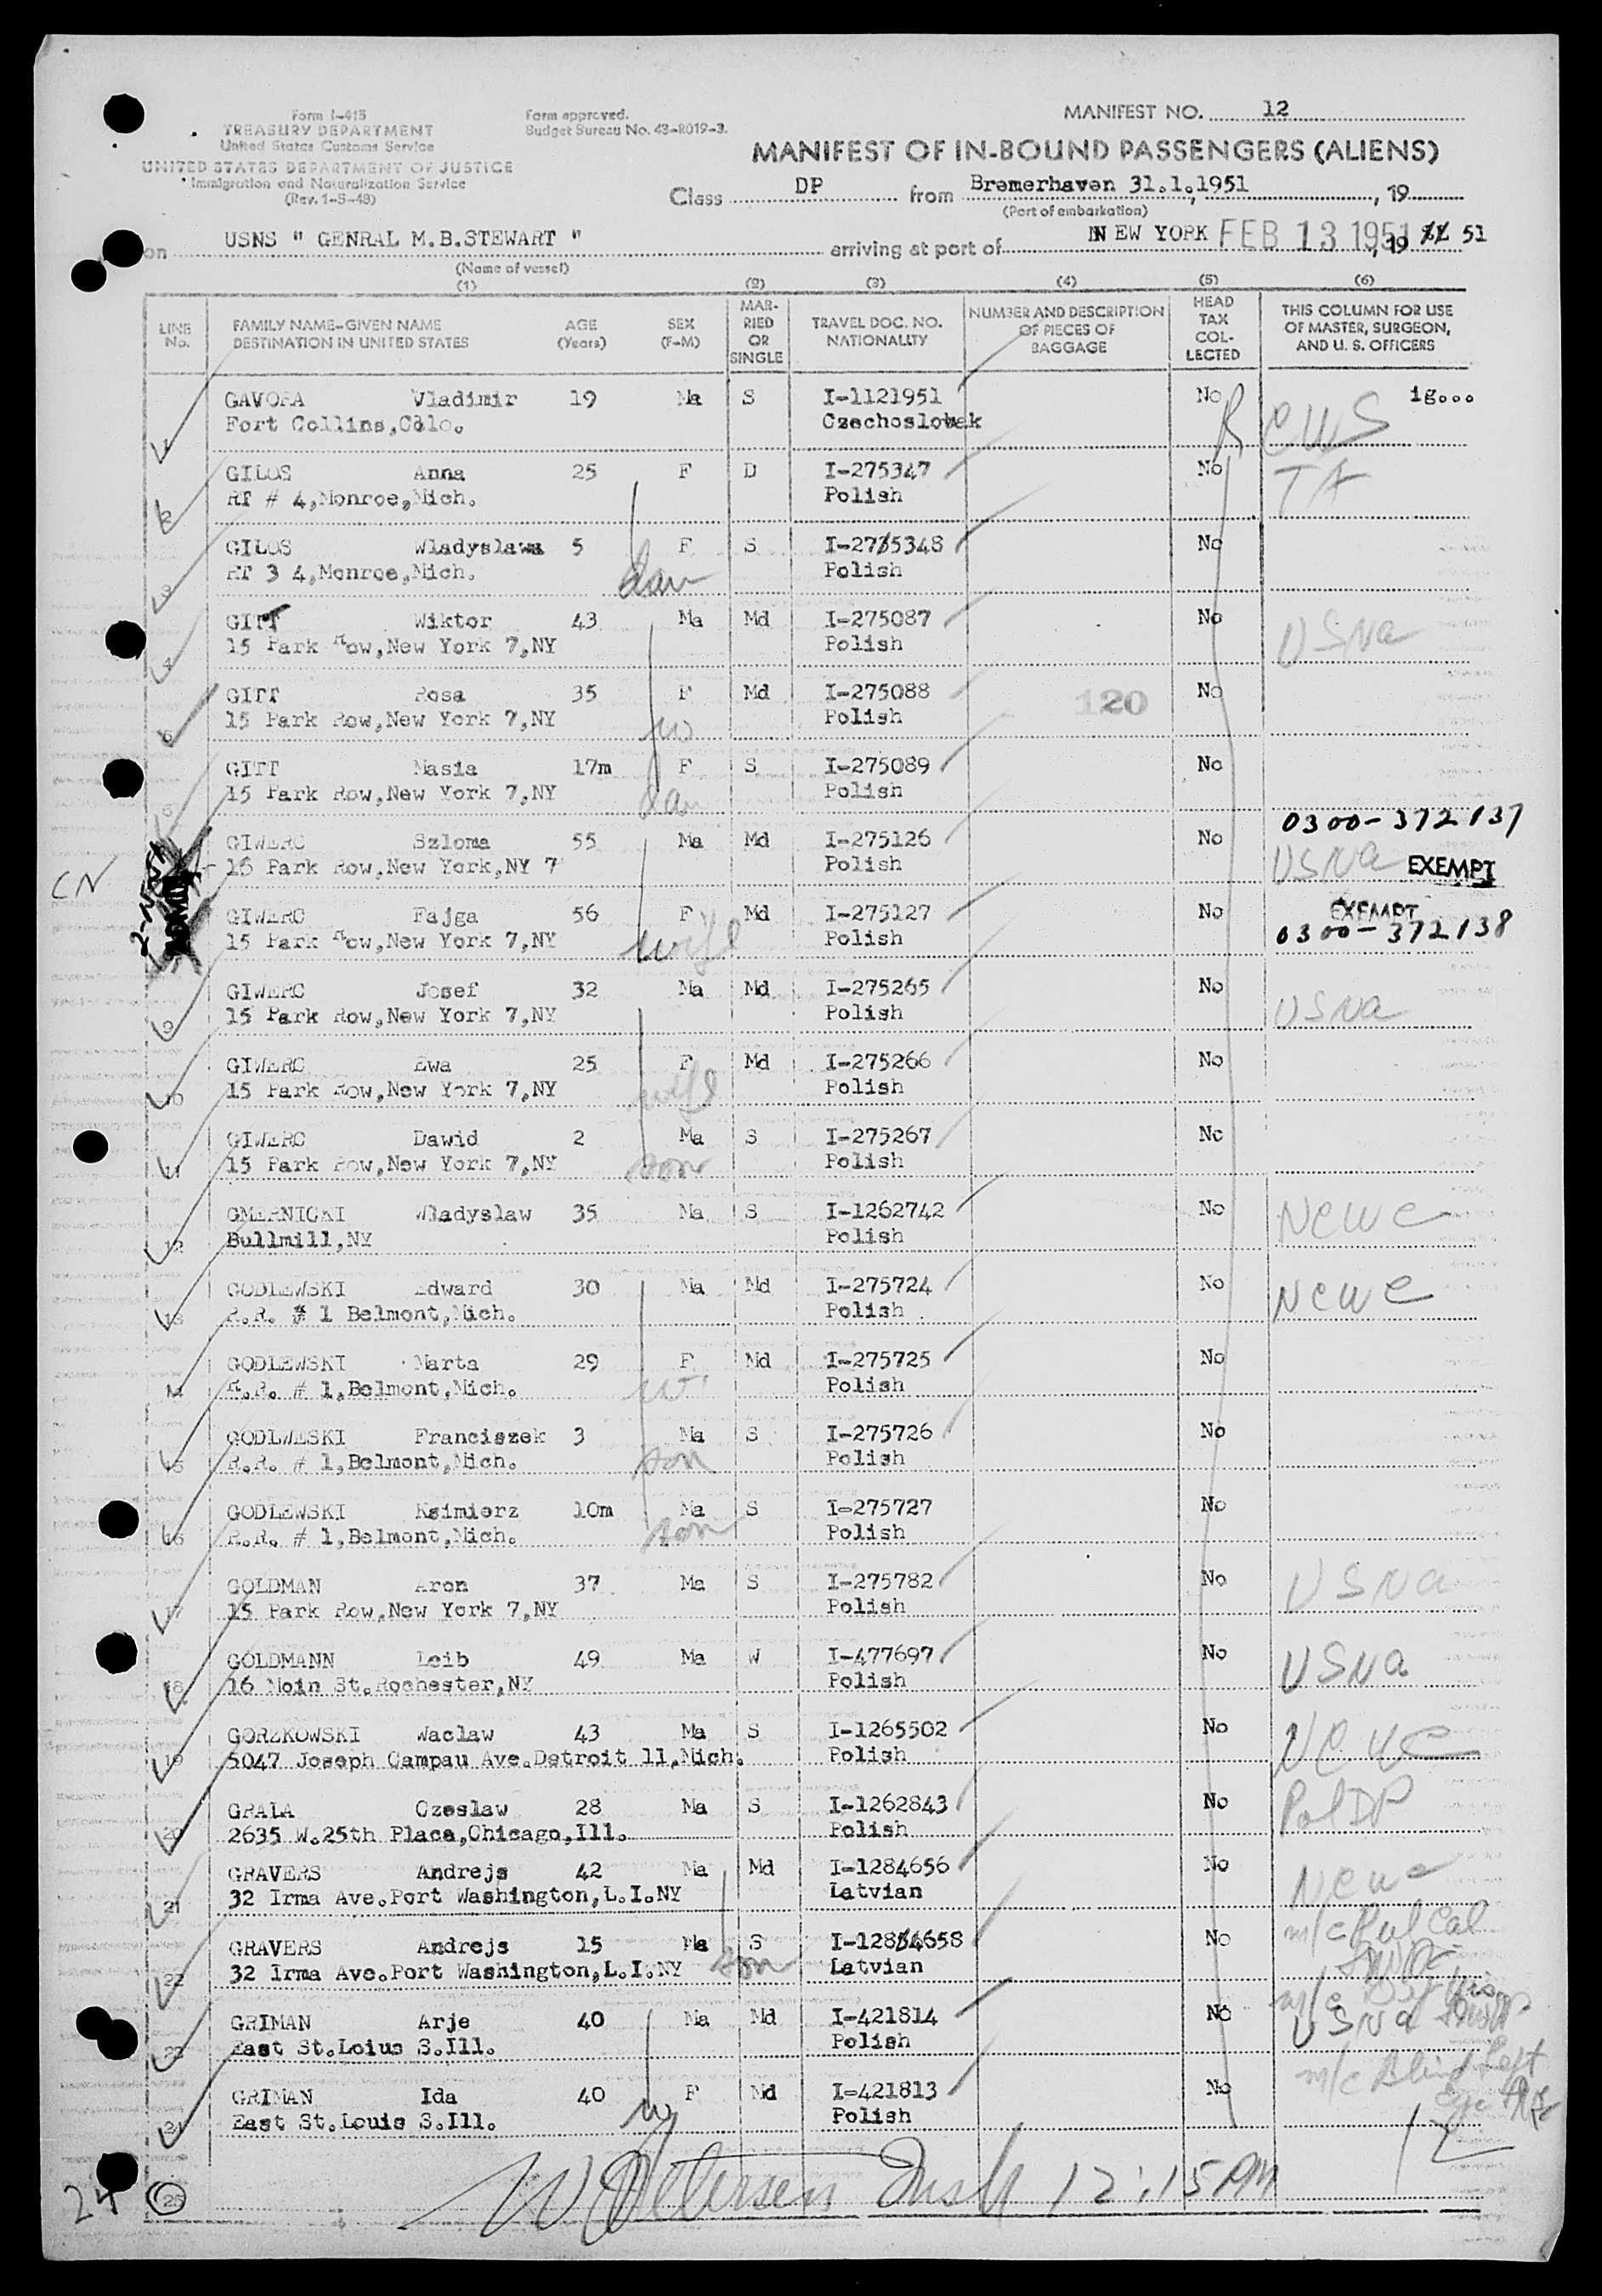 Form I-415
TREASURY DEPARTMENT
United States Customs Service
UNITED STATES DEPARTMENT OF JUSTICE
Immigration and Naturalization Service
(Rev. 1-5-48)
Form approved.
Budget Bureau No. 43-R019-3.
MANIFEST NO. 12
MANIFEST OF IN-BOUND PASSENGERS (ALIENS)
Class DP from Bremerhaven 31.1.1951, 19
(Port of embarkation)
on USNS " GENRAL M.B.STEWART " arriving at port of NEW YORK FEB 13 1951, 19 51
(Name of vessel)
(1) (2) (3) (4) (5) (6)
LINE No. FAMILY NAME-GIVEN NAME DESTINATION IN UNITED STATES AGE (Years) SEX (F-M) MARRIED OR SINGLE TRAVEL DOC. NO. NATIONALITY NUMBER AND DESCRIPTION OF PIECES OF BAGGAGE HEAD TAX COLLECTED THIS COLUMN FOR USE OF MASTER, SURGEON, AND U. S. OFFICERS
1 GAVORA Vladimir 19 Ma S I-1121951 No ig...
Fort Collins,Colo. Czechoslowak R CWS
2 GILOS Anna 25 F D I-275347 No
RT # 4,Monroe,Mich. Polish
3 GILOS Wladyslawa 5 F S I-275348 No
RT 3 4,Monroe,Mich. dau Polish
4 GITT Wiktor 43 Ma Md I-275087 No
15 Park Row,New York 7,NY Polish USNA
5 GITT Rosa 35 F Md I-275088 120 No
15 Park Row,New York 7,NY w Polish
6 GITT Masia 17m F S I-275089 No
15 Park Row,New York 7,NY dau Polish
0300-372137
GIWERC Szloma 55 Ma Md I-275126 No
CN 16 Park Row,New York,NY 7 Polish USNA EXEMPT
GIWERC Fajga 56 F Md I-275127 No EXEMPT
15 Park Row,New York 7,NY wife Polish 0300-372138
9 GIWERC Josef 32 Ma Md I-275265 No
15 Park Row,New York 7,NY Polish USNA
10 GIWERC Ewa 25 F Md I-275266 No
15 Park Row,New York 7,NY wife Polish
11 GIWERC Dawid 2 Ma S I-275267 No
15 Park Row,New York 7,NY son Polish
12 GMERNICKI Wladyslaw 35 Ma S I-1262742 No NCWC
Bullmill,NY Polish
13 GODLEWSKI Edward 30 Ma Md I-275724 No NCWC
R.R. # 1 Belmont,Mich. Polish
14 GODLEWSKI Marta 29 F Md I-275725 No
R.R. # 1,Belmont,Mich. Polish
15 GODLWESKI Franciszek 3 Ma S I-275726 No
R.R. # 1,Belmont,Mich. son Polish
16 GODLEWSKI Ksimierz 10m Ma S I-275727 No
R.R. # 1,Belmont,Mich. son Polish
17 GOLDMAN Aron 37 Ma S I-275782 No USNA
15 Park Row,New York 7,NY Polish
18 GOLDMANN Leib 49 Ma W I-477697 No USNA
16 Moin St.Rochester,NY Polish
19 GORZKOWSKI Waclaw 43 Ma S I-1265502 No NCWC
5047 Joseph Campau Ave.Detroit 11,Mich. Polish
20 GRALA Czeslaw 28 Ma S I-1262843 No Pol DP
2635 W.25th Place,Chicago,Ill. Polish
21 GRAVERS Andrejs 42 Ma Md I-1284656 No NCWC
32 Irma Ave.Port Washington,L.I.NY Latvian
22 GRAVERS Andrejs 15 Ma S I-1284658 No m/c Pul Cal
32 Irma Ave.Port Washington,L.I.NY son Latvian
23 GRIMAN Arje 40 Ma Md I-421814 No USNA
East St.Loius S.Ill. Polish
24 GRIMAN Ida 40 F Md I-421813 No m/c Blind Left Eye
East St.Louis S.Ill. w Polish
24 25 W Petersen Insp 12:15 PM